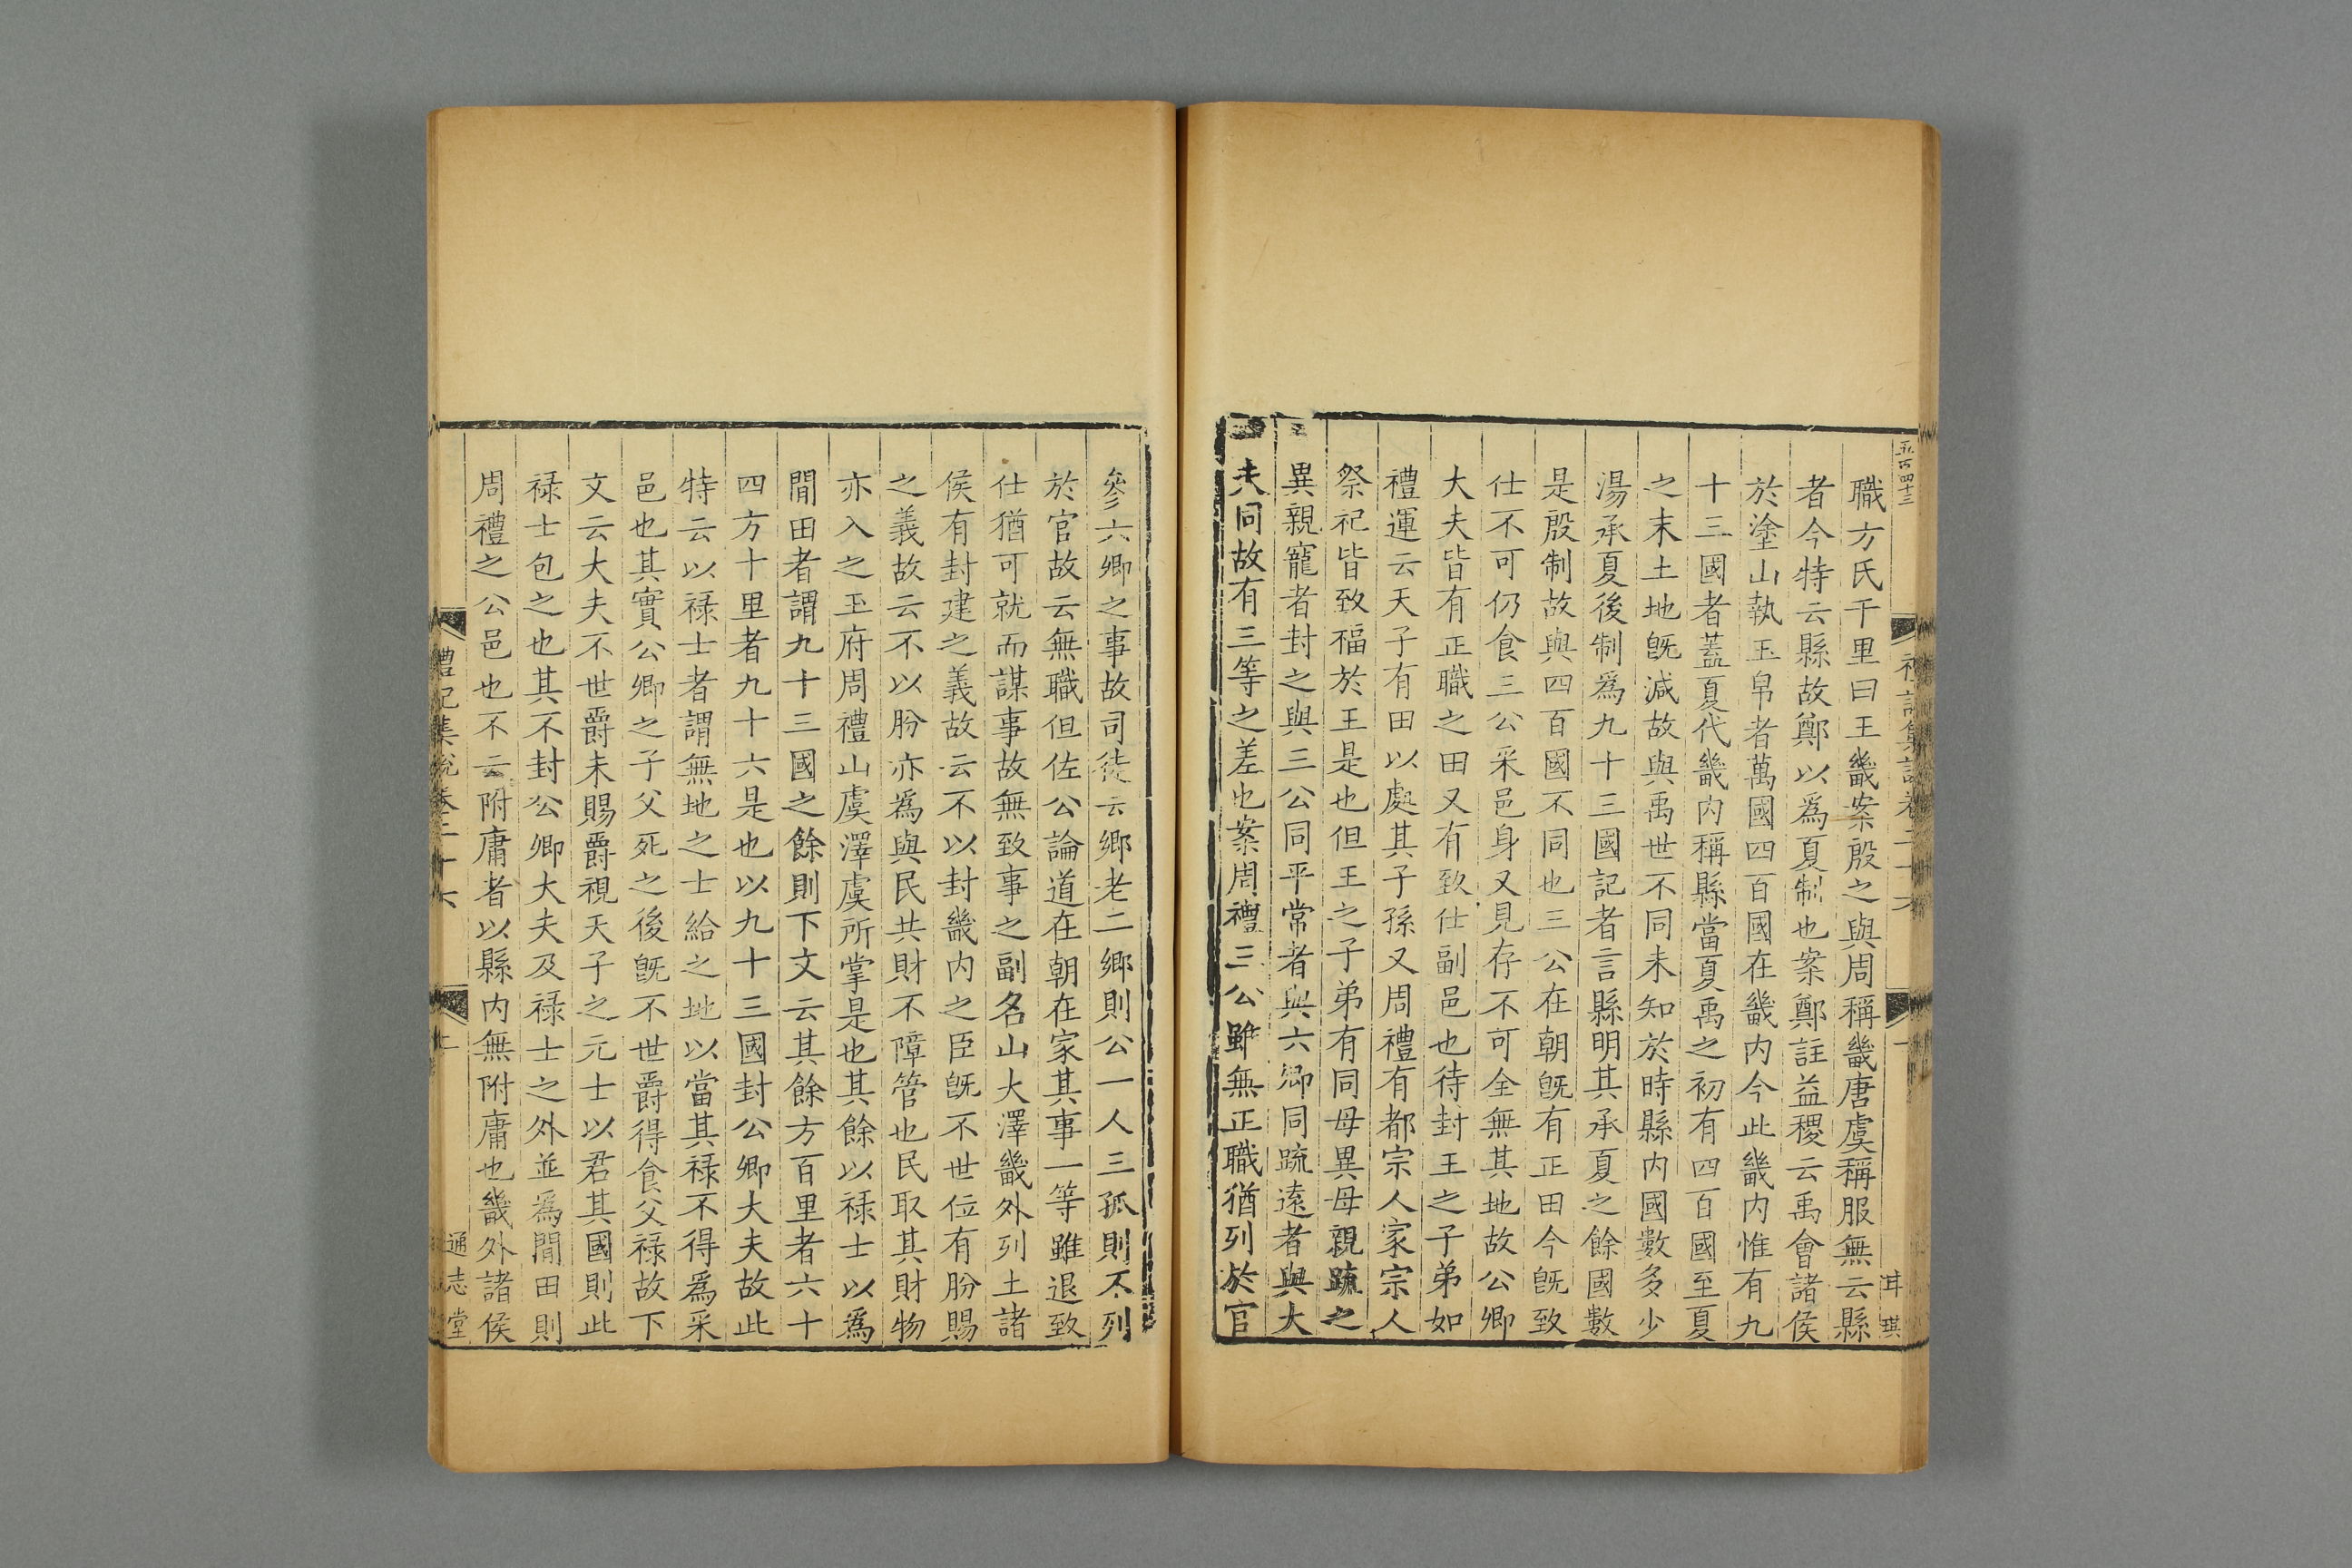 五百四十三
職方氏千里曰王畿案殷之與周稱畿唐虞稱服無云縣
者今特云縣故鄭以爲夏制也案鄭註益稷云禹會諸侯
於塗山執玉帛者萬國四百國在畿内今此畿内惟有九
十三國者蓋夏代畿内稱縣當夏禹之初有四百國至夏
之末土地旣減故與禹世不同未知於時縣内國數多少
湯承夏後制爲九十三國記者言縣明其承夏之餘國數
是殷制故與四百國不同也三公在朝旣有正田今旣致
仕不可仍食三公采邑身又見存不可全無其地故公卿
大夫皆有正職之田又有致仕副邑也待封王之子弟如
禮運云天子有田以處其子孫又周禮有都宗人家宗人
祭祀皆致福於王是也但王之子弟有同母異母親疏之
異親寵者封之與三公同平常者與六卿同疏遠者與大
夫同故有三等之差也案周禮三公雖無正職猶列於官
參六卿之事故司徒云鄉老二鄉則公一人三孤則不列
於官故云無職但佐公論道在朝在家其事一等雖退致
仕猶可就而謀事故無致事之副名山大澤畿外列土諸
侯有封建之義故云不以封畿内之臣旣不世位有盼賜
之義故云不以盼亦爲與民共財不障管也民取其財物
亦入之玉府周禮山虞澤虞所掌是也其餘以祿士以爲
閒田者謂九十三國之餘則下文云其餘方百里者六十
四方十里者九十六是也以九十三國封公卿大夫故此
特云以祿士者謂無地之士給之地以當其祿不得爲采
邑也其實公卿之子父死之後旣不世爵得食父祿故下
文云大夫不世爵未賜爵視天子之元士以君其國則此
祿士包之也其不封公卿大夫及祿士之外並爲閒田則
周禮之公邑也不云附庸者以縣内無附庸也畿外諸侯
禮記集說卷二十六
通志堂